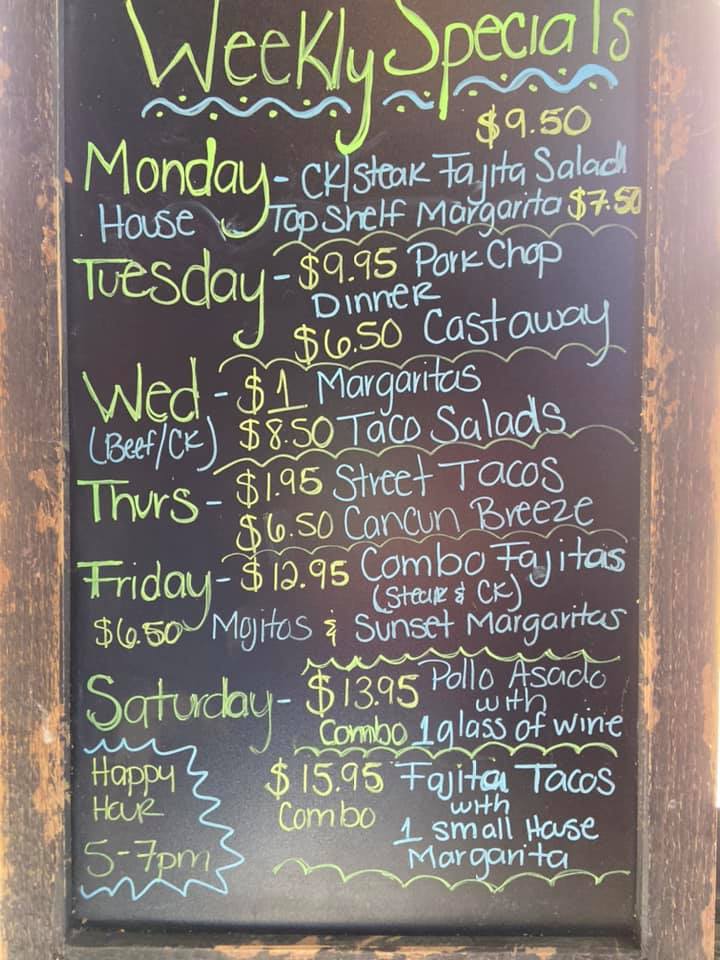 Weekly Specials
$9.50
Monday - CK/Steak Fajita Salad
House Top Shelf Margarita $7.50
Tuesday - $9.95 Pork Chop
Dinner
$6.50 Castaway
Wed - $1 Margaritas
(Beef/CK) $8.50 Taco Salads
Thurs - $1.95 Street Tacos
$6.50 Cancun Breeze
Friday - $12.95 Combo Fajitas
(Steak & CK)
$6.50 Mojitos & Sunset Margaritas
Saturday - $13.95 Pollo Asado
with
Combo 1 glass of wine
Happy
Hour
5-7pm
$15.95 Fajita Tacos
Combo with
1 small House
Margarita